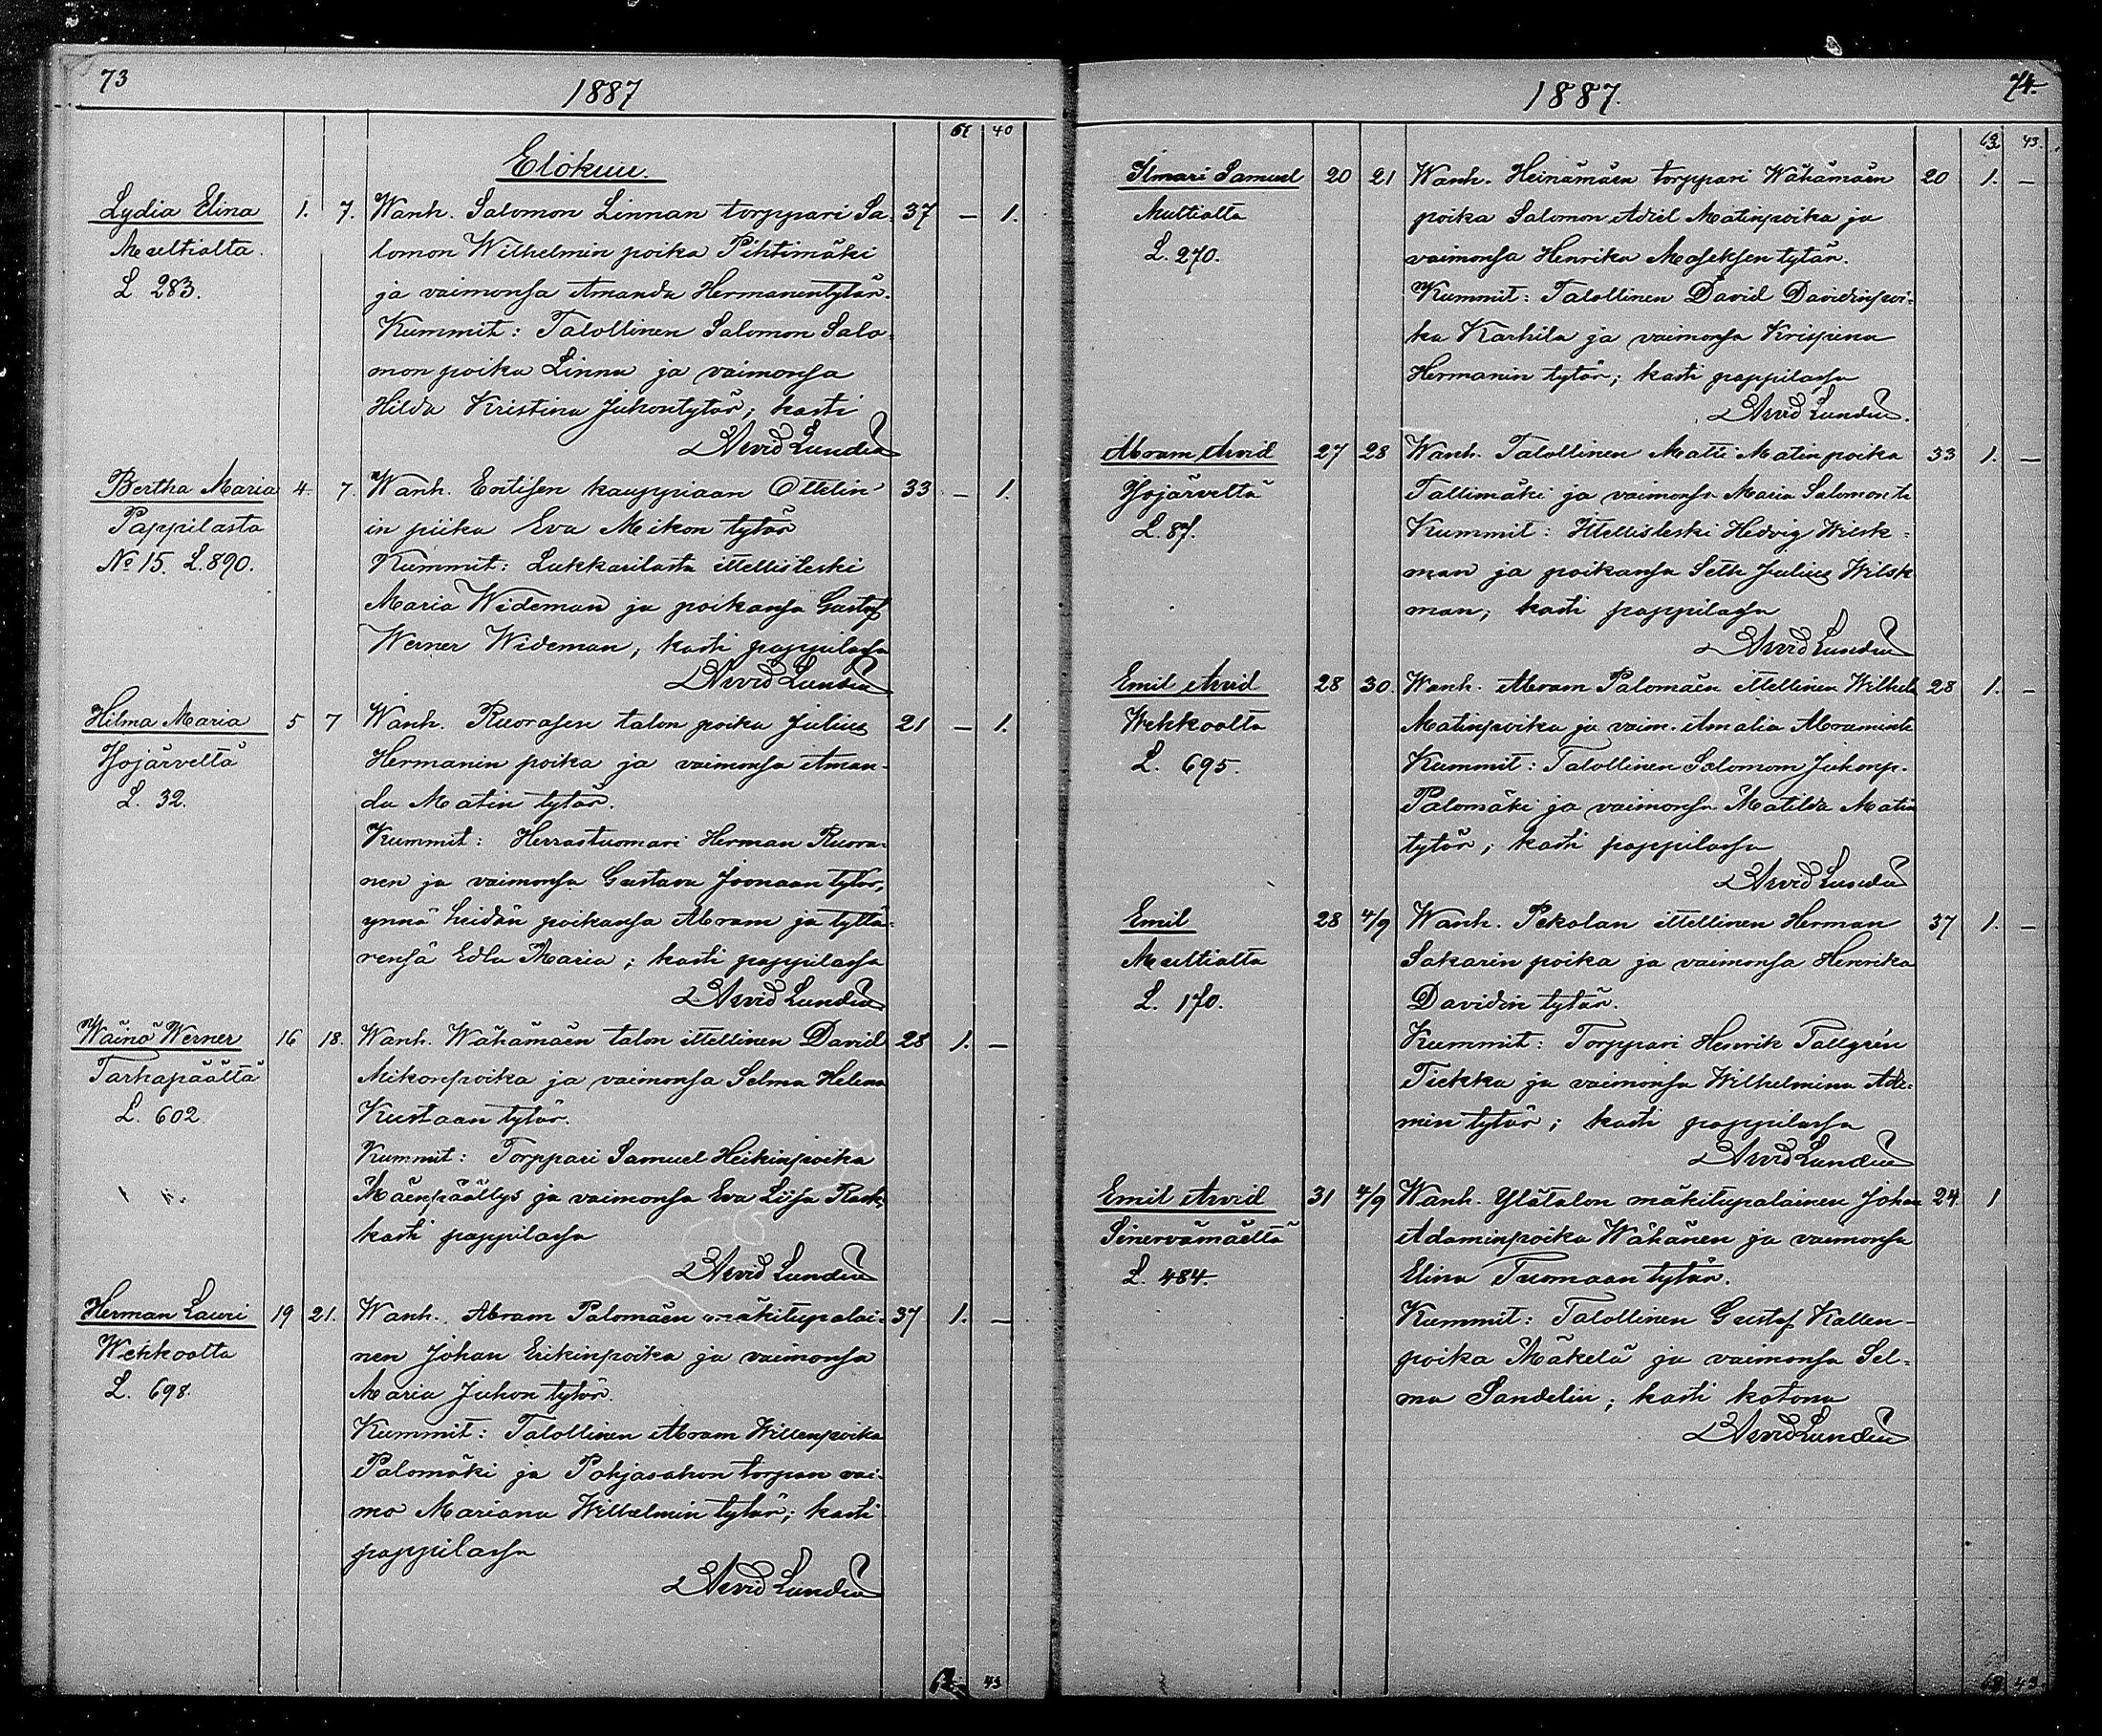 73
1887
61 40
Elokuu.
Lydia Elina 1. 7. Wanh. Salomon Linnan torppari Sa- 37 — 1.
Multialta. lomon Wilhelmin poika Pihtimäki
L 283. ja vaimonsa Amanda Hermanentytär.
Kummit: Talollinen Salomon Salo-
mon poika Linna ja vaimonsa
Hilda Kristina Juhontytär; kasti
Arvid Lundén
Bertha Maria 4. 7. Wanh. kauppiaan Ottelin 33 — 1.
Pappilasta in piika Eva Mikon tytär
No 15. L. 890. Kummit: Lukkarilasta ittellisleski
Maria Wideman ja poikansa Gustaf
Werner Wideman, kasti pappilassa
Arvid Lundén
Hilma Maria 5 7 Wanh. Ruorasen talon poika Julius 21 — 1.
Isojärveltä Hermanin poika ja vaimonsa Aman-
L. 32. da Matin tytär.
Kummit: Herrastuomari Herman Ruora-
nen ja vaimonsa Gustava Joonaan tytär,
ynnä heidän poikansa Abram ja tyttä-
rensä Edla Maria; kasti pappilassa
Arvid Lundén
Wäinö Werner 16 18. Wanh. Wähämäen talon ittellinen David 28 1. —
Tarhapäältä Mikonpoika ja vaimonsa Selma Helena
L. 602. Kustaan tytär.
Kummit: Torppari Samuel Heikinpoika
Mäenpäällys ja vaimonsa Eva Liisa
kasti pappilassa
Arvid Lundén
Herman Lauri 19 21. Wanh. Abram Palomäen mäkitupalai- 37 1. —
Wehkoolta nen Johan Erikinpoika ja vaimonsa
L. 698. Maria Juhon tytär.
Kummit: Talollinen Abram Willenpoika
Palomäki ja Pohjasahon torpan vai-
mo Mariana Wilhelmin tytär; kasti
pappilassa
Arvid Lundén
43
74.
1887.
62 43.
Ilmari Samuel 20 21 Wanh. Heinämäen torppari Wähämäen 20 1. —
Multialta poika Salomon Adiel Matinpoika ja
L. 270. vaimonsa Henrika Moseksen tytär.
Kummit: Talollinen David Davidinpoi-
ka Karhila ja vaimonsa Krispina
Hermanin tytär; kasti pappilassa
Arvid Lundén.
Abram Arvid 27 28 Wanh. Talollinen Matti Matinpoika 33 1. —
Isojärveltä Tallimäki ja vaimonsa Maria Salomon t.
L. 87. Kummit: Ittellisleski Hedvig Wilsk-
man ja poikansa Seth Julius Wilsk
man; kasti pappilassa
Arvid Lundén
Emil Arvid 28 30. Wanh. Abram Palomäen ittellinen Wilhelm 28 1. —
Wehkoolta Matinpoika ja vaim. Amalia Abramint.
L. 695. Kummit: Talollinen Salomon Juhonp.
Palomäki ja vaimonsa Matilda Matin
tytär; kasti pappilassa
Arvid Lundén
Emil 28 4/9 Wanh. Pekolan ittellinen Herman 37 1. —
Multialta Sakarin poika ja vaimonsa Henrika
L. 170. Davidin tytär.
Kummit: Torppari Henrik Tallgrén
Tiekka ja vaimonsa Wilhelmina Ada-
min tytär; kasti pappilassa
Arvid Lundén
Emil Arvid 31 4/9 Wanh. Ylätalon mäkitupalainen Johan 24 1
Sinervämäeltä Adaminpoika Wähänen ja vaimonsa
L. 484. Elina Tuomaan tytär.
Kummit: Talollinen Gustaf Kallen-
poika Mäkelä ja vaimonsa Sel-
ma Sandelin; kasti kotona
Arvid Lundén
68 43